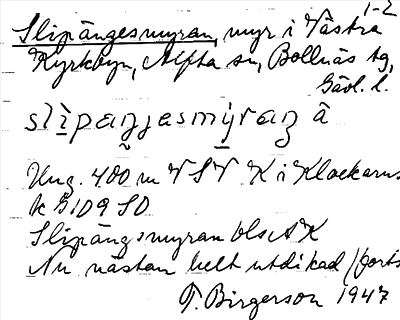 1-2
Slipängesmyran, myr i Västra
Kyrkbyn, Alfta sn, Bollnäs tg,
Gävl. l.
slìpaŋ̣ɟesmýraṇ â
Ung. 400 m VSV K i Klockarns
k 5109 SO
Slipängsmyran bls AK
Nu nästan helt utdikad (forts
T. Birgerson 1947